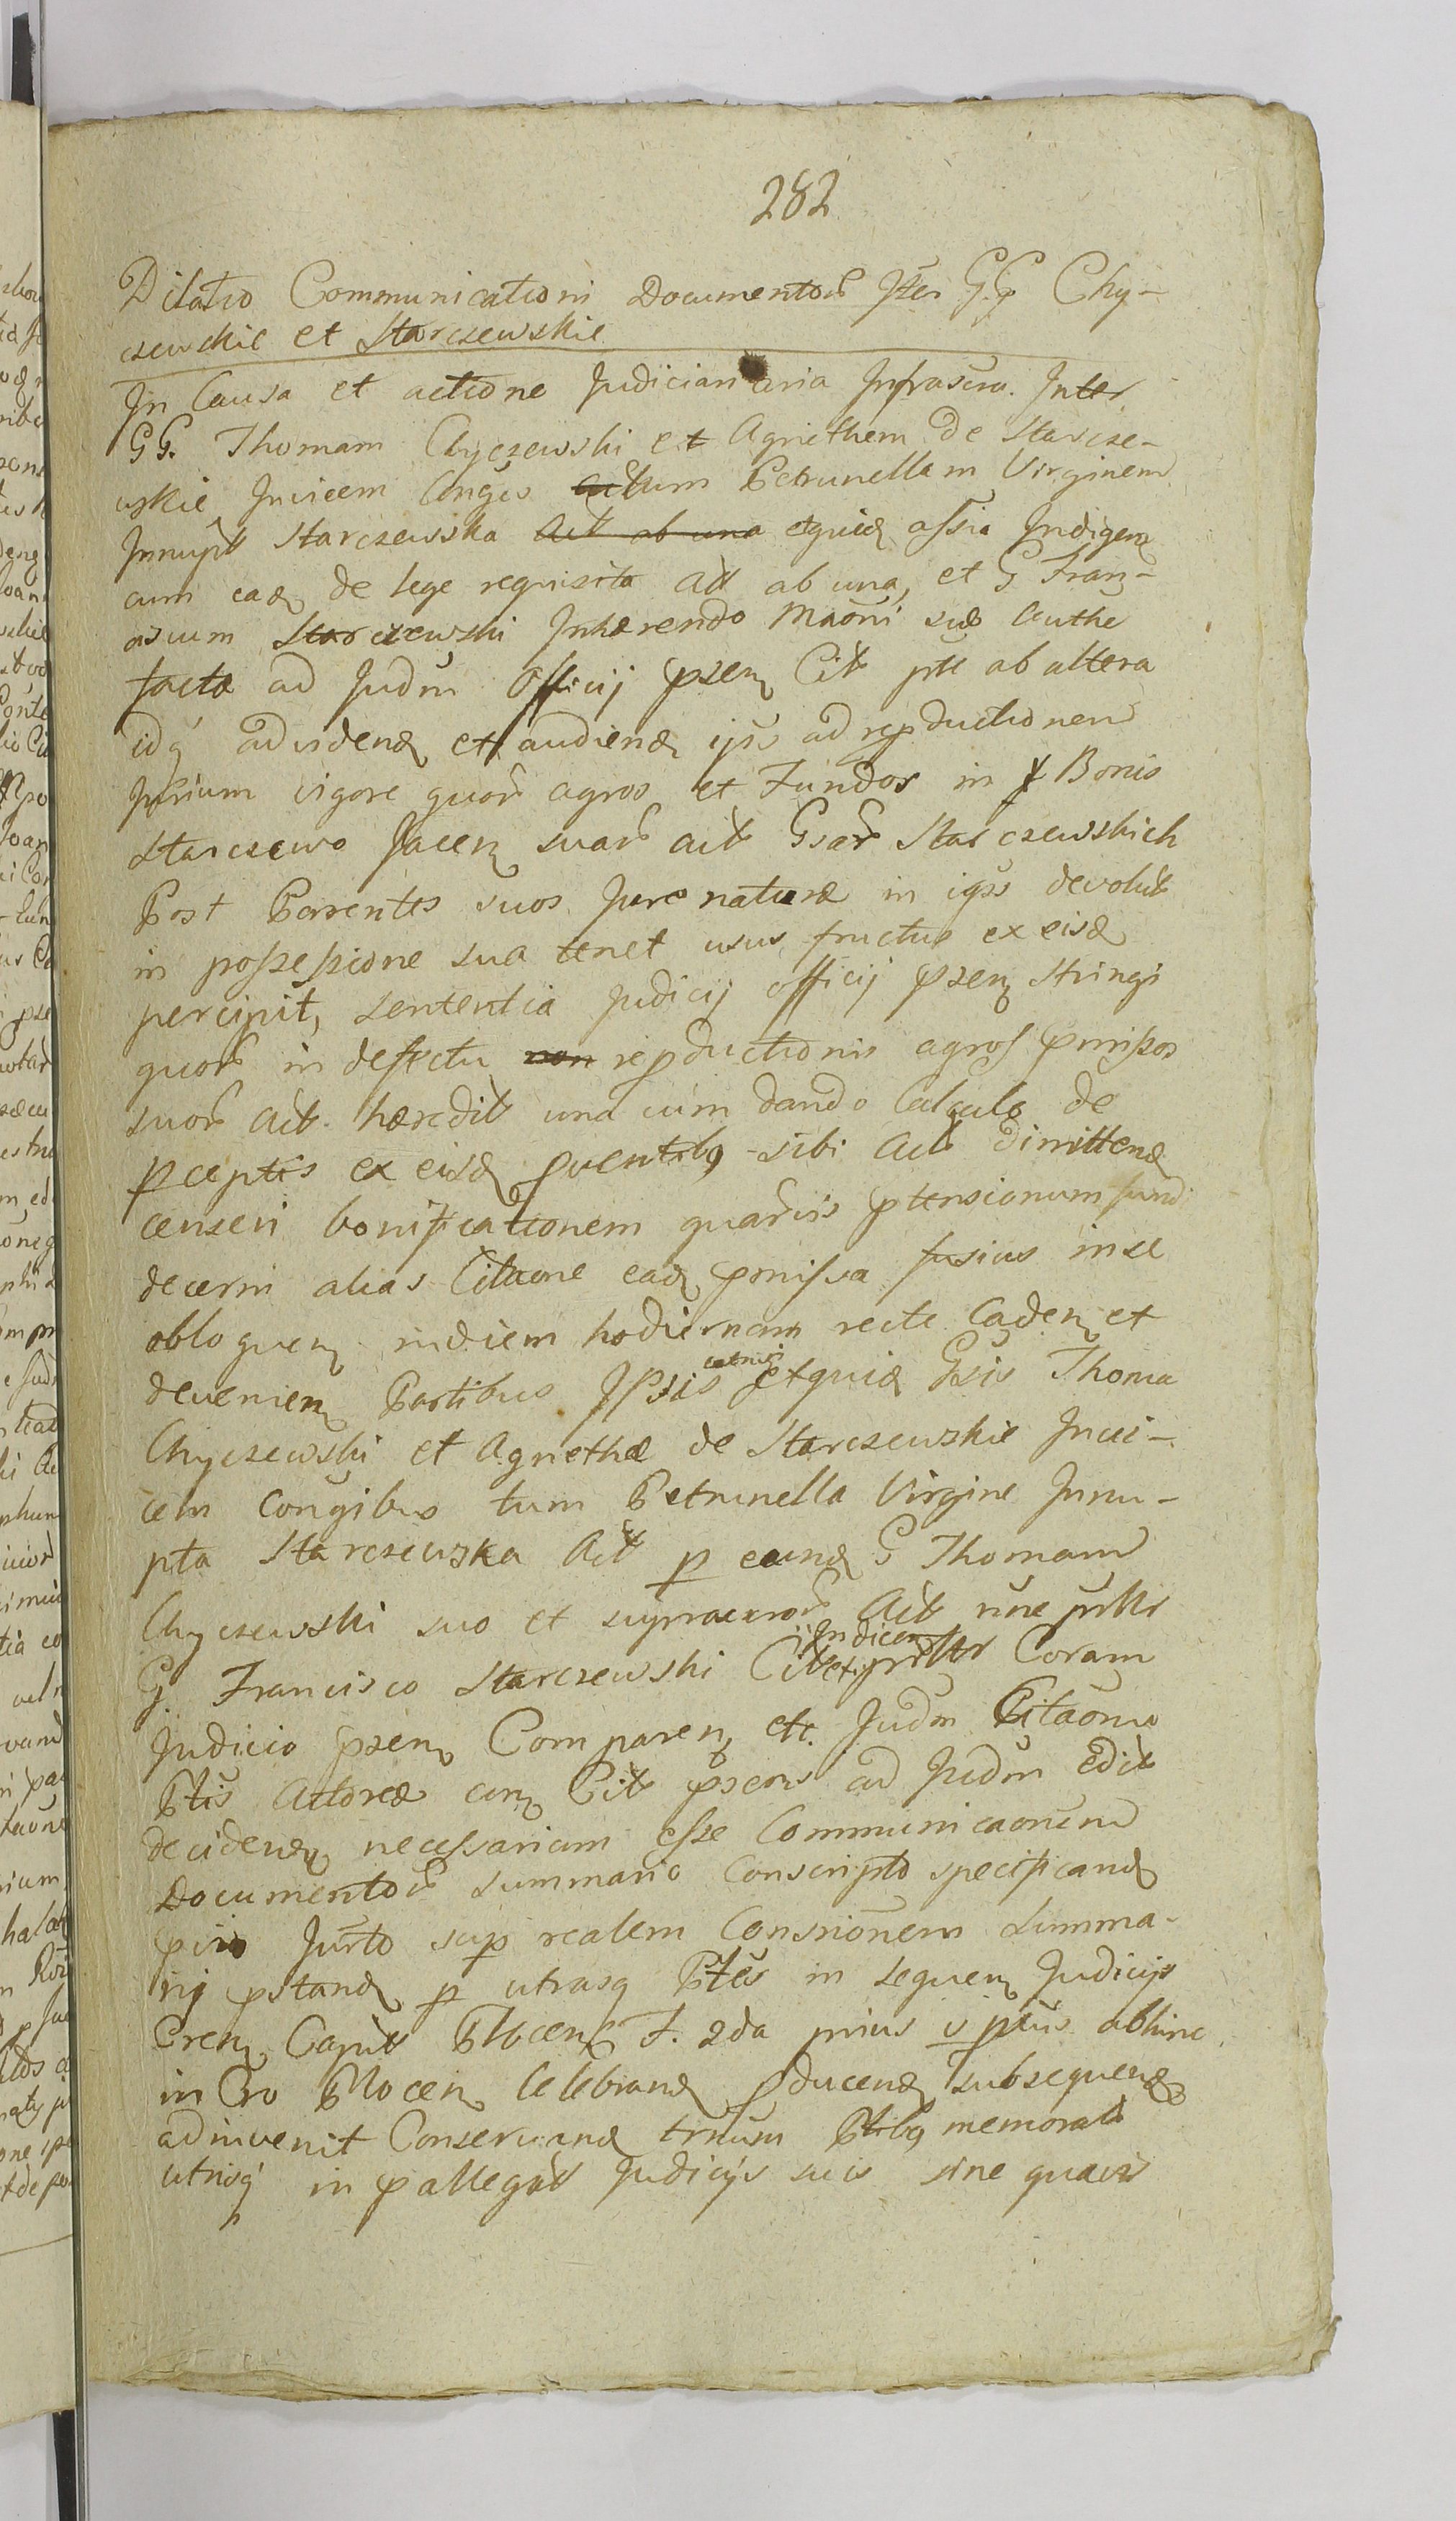 282
Dilatio Communicationi Documentor Jter GG Chy-
czewskie et Starczewskie
In Causa et actione Judiciaria Infrascra. Inter
GG. Thomam Chyczewski et Agnethem de Starcze-
wskie Invicem Conges tum Petrunellam Virginem
Innupt Starczewska Act ab una etquid assia Indigen
cum ead de lege requisita Act ab una, et G Fran-
ciscum Starczewski Inhærendo Maõni suæ Authe
facta ad Judm Officij psen Cit pte ab altera
idq advidend et audiend ips ad repductionem
Jurium vigore quor agros et Fundos in Bonis
Starczewo Jacen suar act Gsor Starczewskich
Post Parentes suos Jure naturæ in ipss devolut
in possessione sua tenet usus fructus ex eisd
percipit, sententia Judicij officij psen stringi
quor in defectu non repductionis agros pmissos
suor Act. hæredit una cum dando Calculo de
pceptis ex eisd pventibq sibi Act dimittend
censeri bonificationem quarvis ptensionum
decerni alias Citaone ead pmissa fusius in se
obloquen in diem hodiernam recte Caden et
devenien Partibus Ipsis etquid Gsis Thoma
Chyczewski et Agnethæ de Starczewskie Invi-
cem Congibus tum Petrunella Virgine Innu-
pta Starczewska Act p eund G Thomam
Chyczewski suo et supra Act nõe pnltr
G. Francisco Starczewski Cit Judicen pnltr Coram
Judicio psen Comparen, etc. Judm Citaõnis
Ptis Actoreæ con Cit psens ad Judm edit
deciden necessariam esse Communicaonem
Documentor summario Conscripto specificand
pvio Jurto sup realem Conscrionem summa-
rij pstand p utrasq Ptes in sequen Judicijs
Cren Capit Plocen F. 2da prius v ptius abhinc
in Cro Plocen Celebrand pducend subsequend
adinvenit Conservand trnum Ptibq memorat
utrisq in pallegat Judicijs suis sine quavis